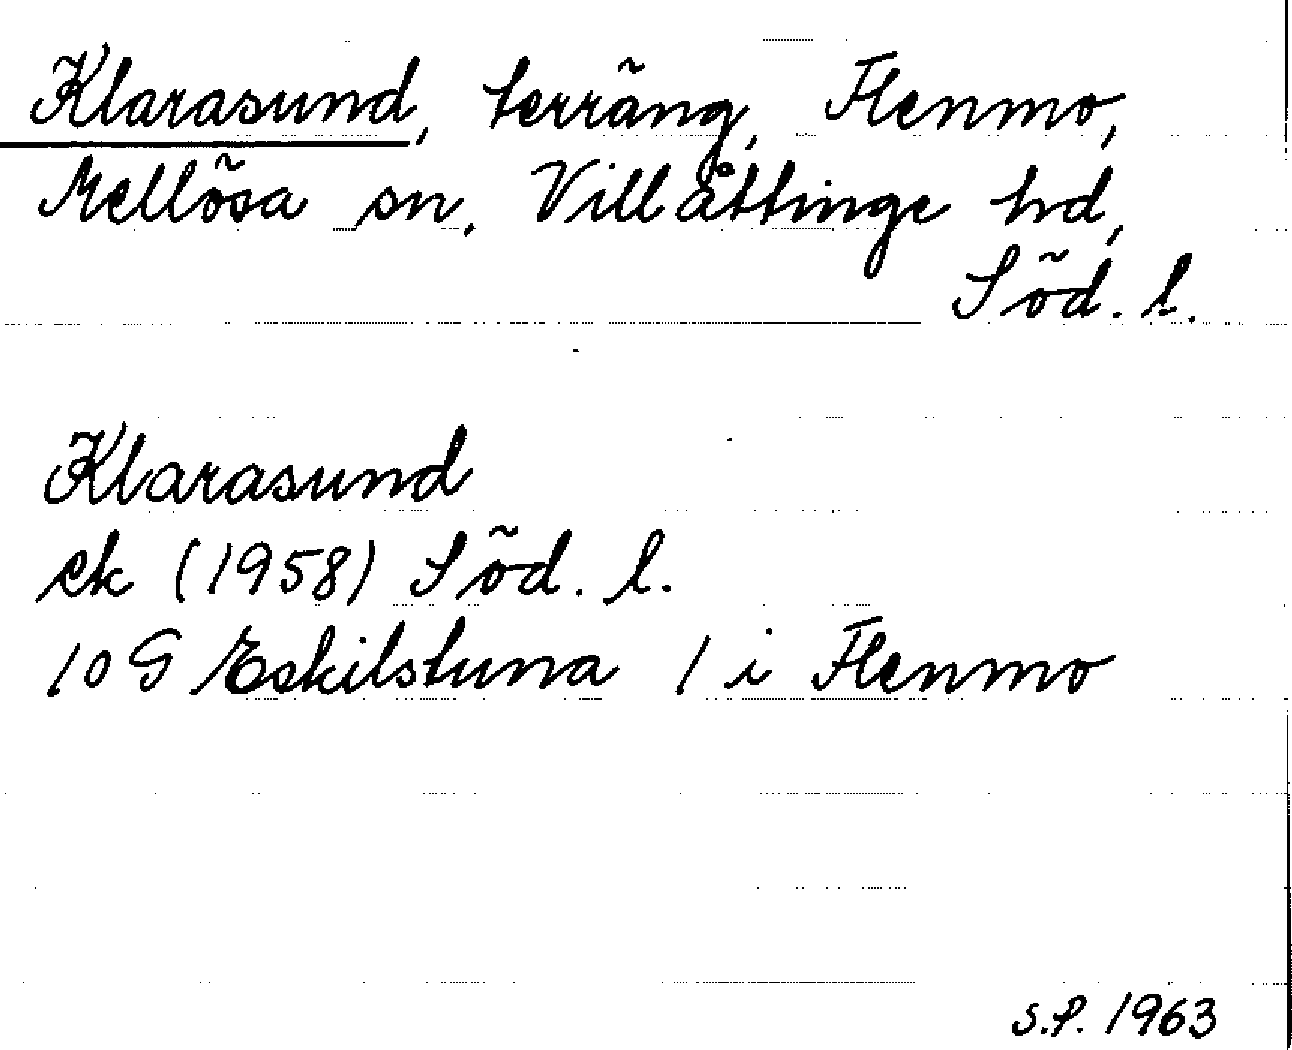 Klarasund, terräng, Flenmo,
Mellösa sn, Villåttinge hd,
Söd. l.
Klarasund
ek (1958) Söd. l.
10 G Eskilstuna 1 i Flenmo
S.P. 1963